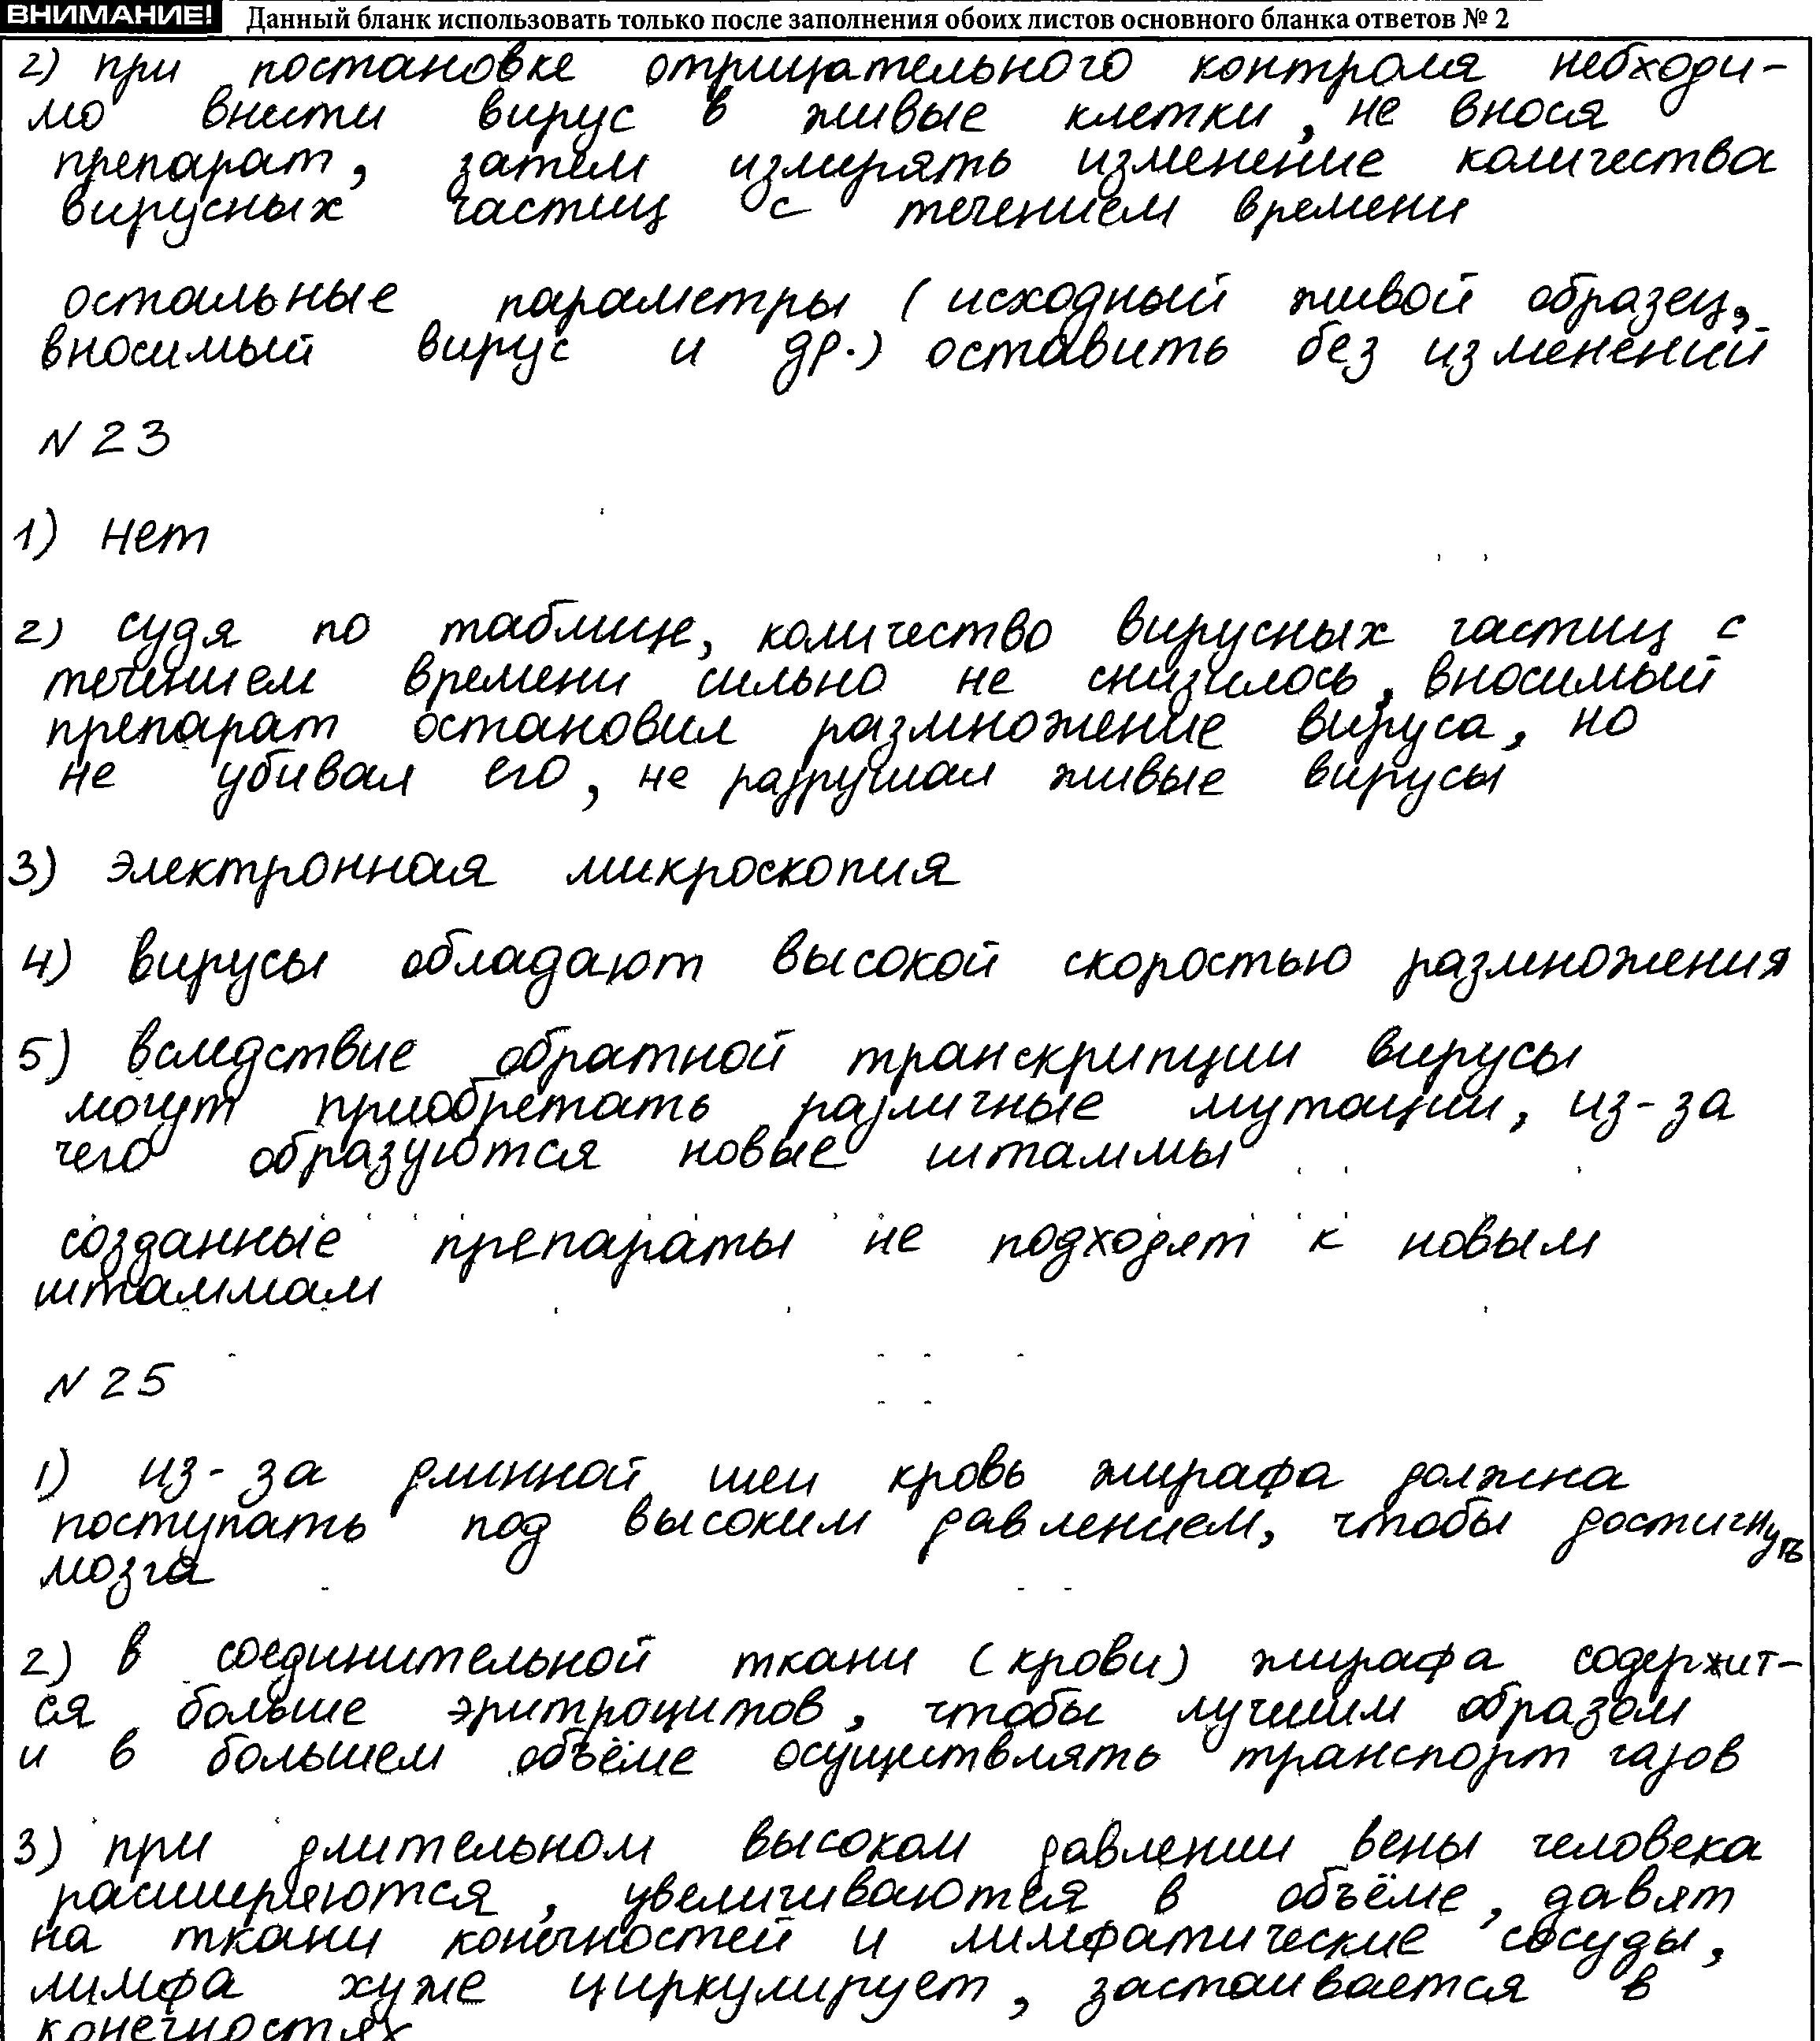 ВНИМАНИЕ! Данный бланк использовать только после заполнения обоих листов основного бланка ответов № 2
2) при постановке отрицательного контроля небходи-
мо внести вирус в живые клетки, не внося
препарат, затем измерять изменение количества
вирусных частиц с течением времени
остальные параметры (исходный живой образец,
вносимый вирус и др.) оставить без изменений
N 23
1) нет
2) судя по таблице, количество вирусных частиц с
течением времени сильно не снизилось, вносимый
препарат остановил размножение вируса, но
не убивал его, не разрушал живые вирусы
3) электронная микроскопия
4) вирусы обладают высокой скоростью размножения
5) вследствие обратной транскрипции вирусы
могут приобретать различные мутации, из-за
чего образуются новые штаммы
созданные препараты не подходят к новым
штаммам
N 25
1) из-за длинной шеи кровь жирафа должна
поступать под высоким давлением, чтобы достигнуть
мозга
2) в соединительной ткани (крови) жирафа содержит-
ся больше эритроцитов, чтобы лучшим образом
и в большем объёме осуществлять транспорт газов
3) при длительном высоком давлении вены человека
расширяются, увеличиваются в объёме, давят
на ткани конечностей и лимфатические сосуды,
лимфа хуже циркулирует, застаивается в
конечностях